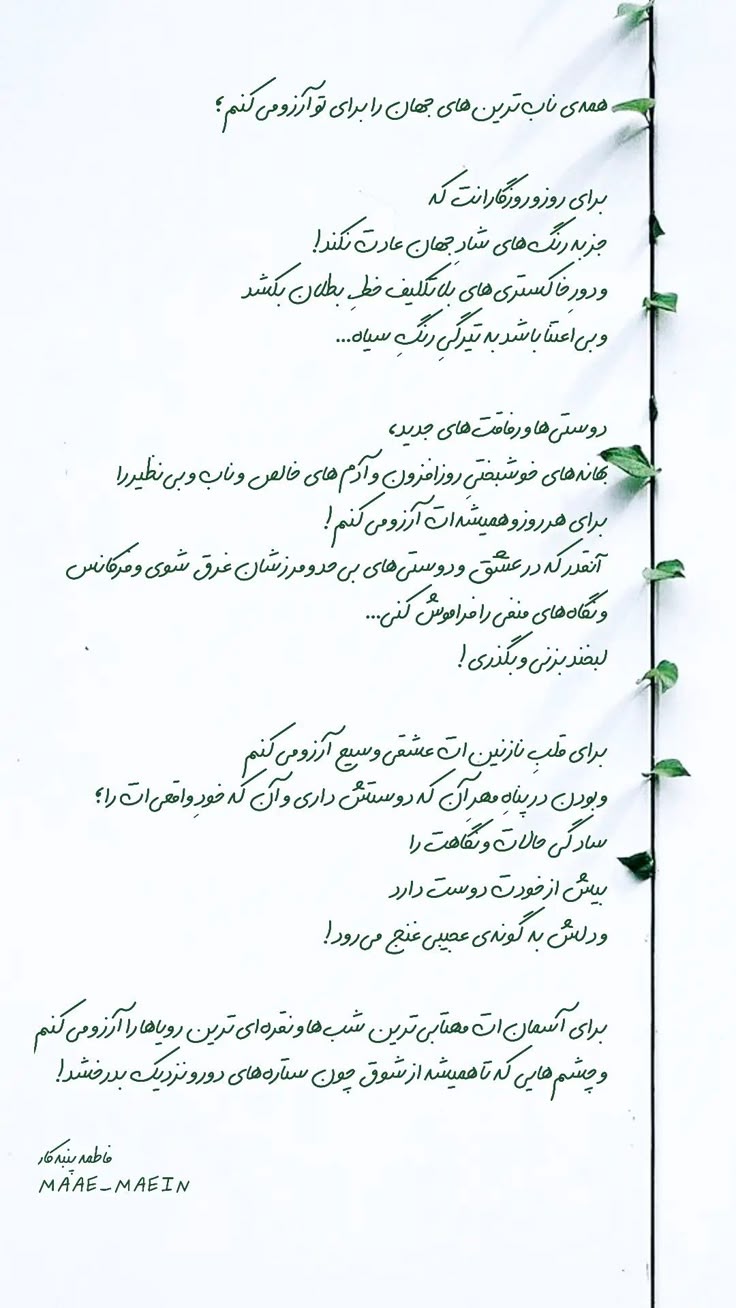 همه‌ی ناب ترین های جهان را برای تو آرزو می کنم؛
برای روز و روزگارانت که
جز به رنگ های شادِ جهان عادت نکند!
و دورِ خاکستری های بلاتکلیف خطِ بطلان بکشد
و بی اعتنا باشد به تیرگیِ رنگِ سیاه...
دوستی ها و رفاقت های جدید،
بهانه های خوشبختیِ روزافزون و آدم های خالص و ناب و بی نظیر را
برای هر روز و همیشه ات آرزو می کنم!
آنقدر که در عشق و دوستی های بی حد و مرزشان غرق شوی و فرکانس
و نگاه های منفی را فراموش کنی...
لبخند بزنی و بگذری!
برای قلبِ نازنین ات عشقی وسیع آرزو می کنم
و بودن در پناهِ مهرِ آن که دوستش داری و آن که خودِ واقعی ات را؛
سادگی حالات و نگاهت را
بیش از خودت دوست دارد
و دلش به گونه ی عجیبی غنج می رود!
برای آسمان ات مهتابی ترین شب ها و نقره ای ترین رویاها را آرزو می کنم
و چشم هایی که تا همیشه از شوق چون ستاره های دور و نزدیک بدرخشد!
فاطمه پنبه کار
MAAE_MAEIN